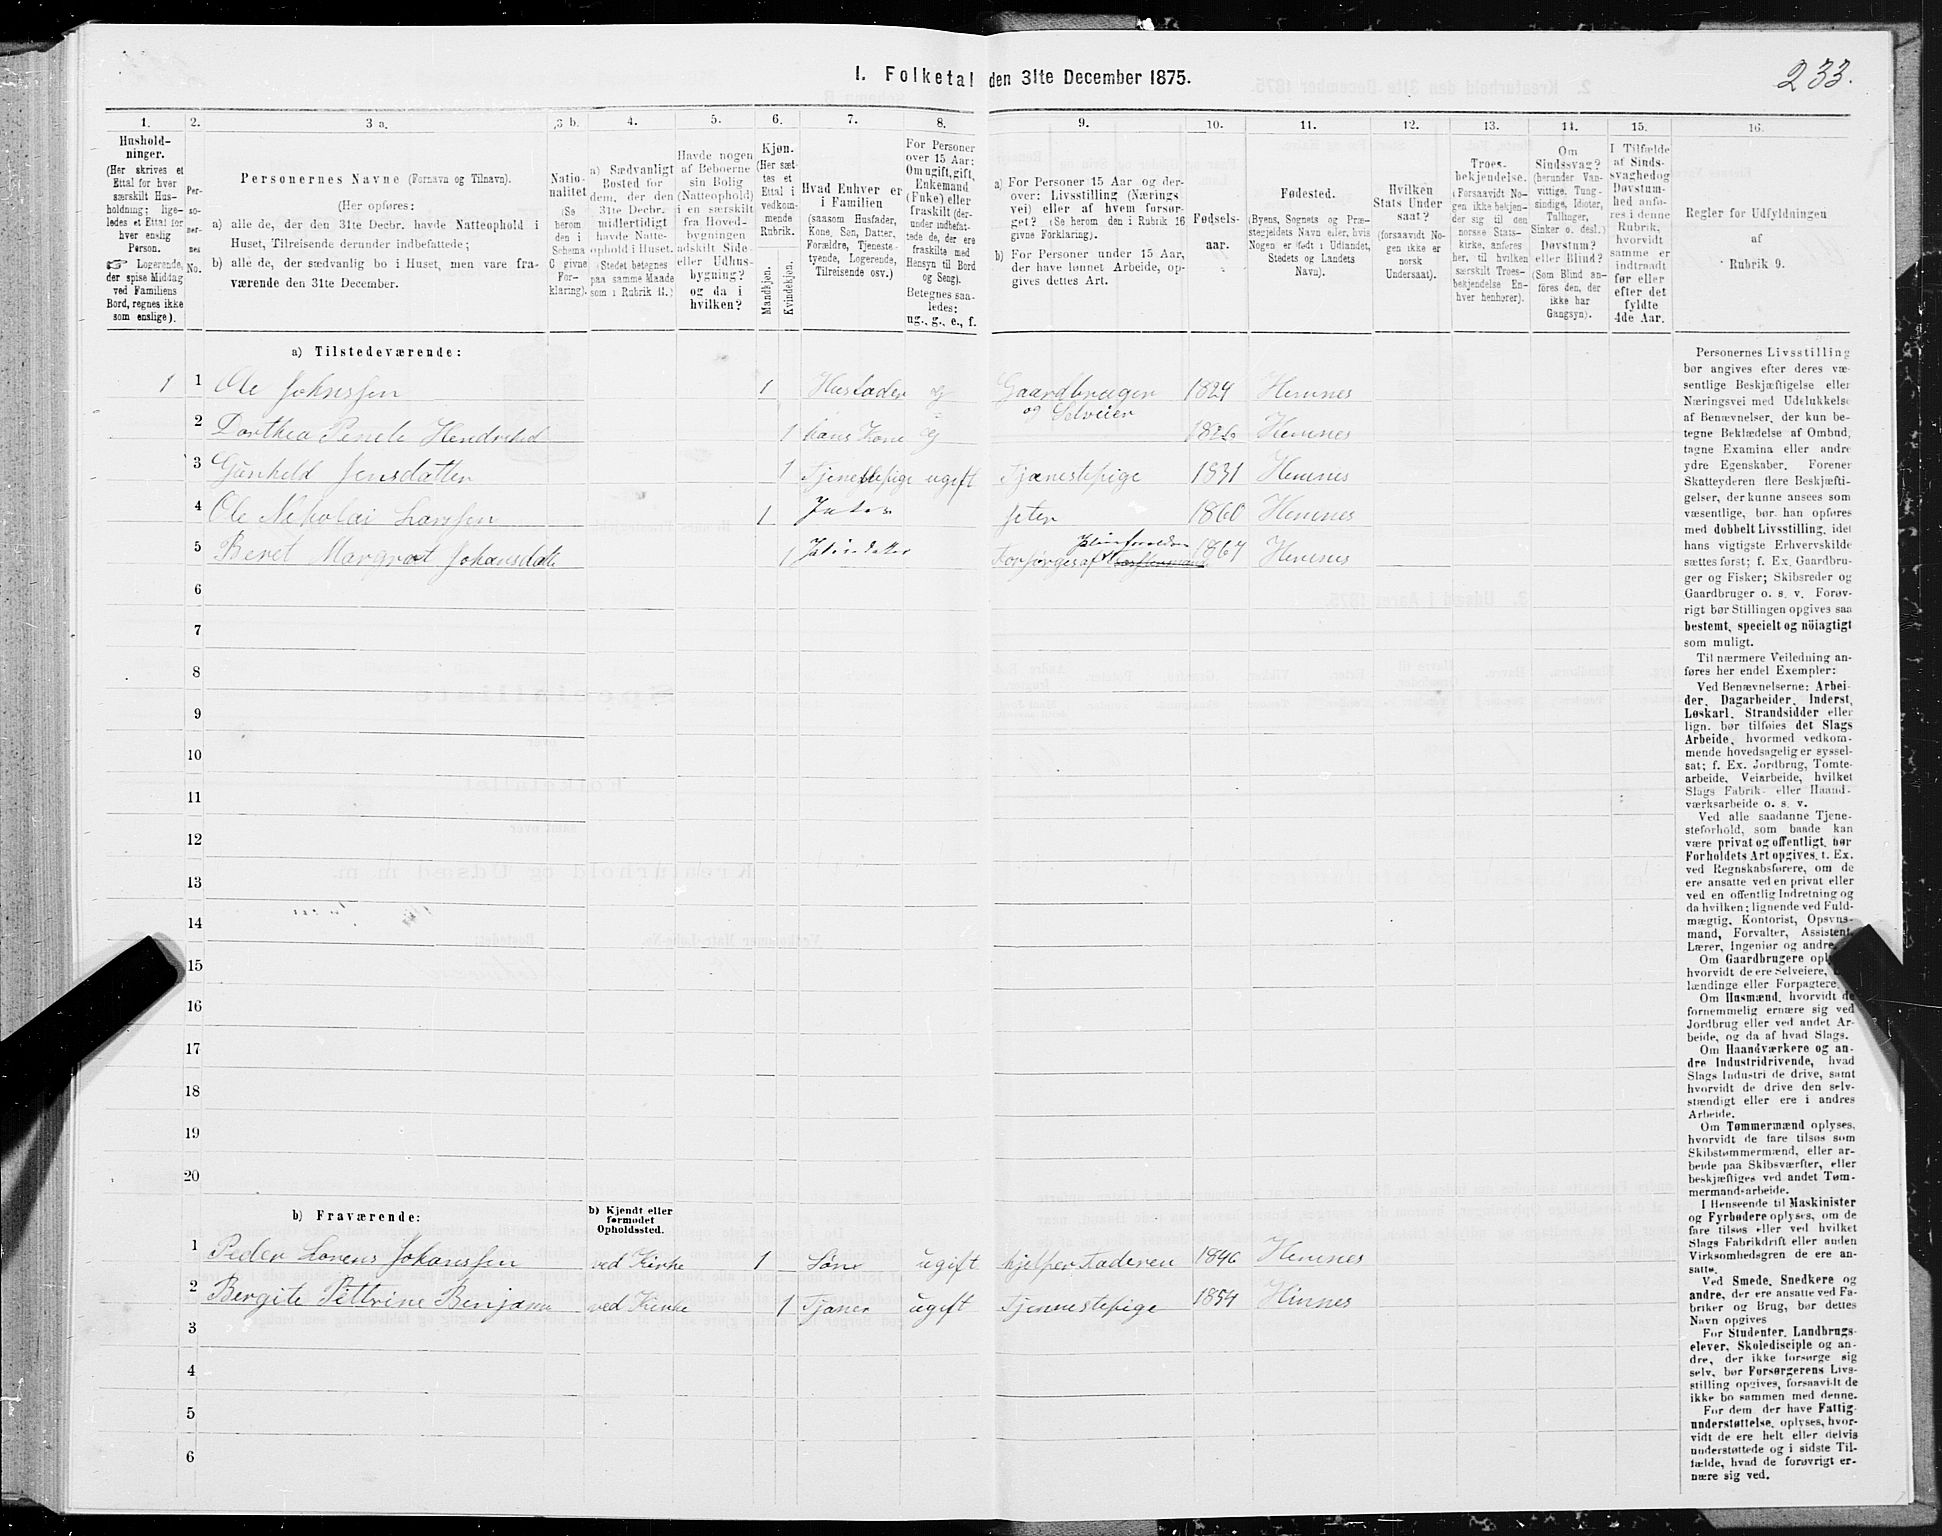 I. Folketal den 31te December 1875.
233.
1.
Hushold-
ninger.
(Her skrives et
Ettal for hver
særskilt Hus-
holdning; lige-
ledes et Ettal for
hver enslig
Person.
☞ Logerende,
der spise Middag
ved Familiens
Bord, regnes ikke
som enslige).
2.
Per-
so-
ner-
nes
No.
3 a.
Personernes Navne (Fornavn og Tilnavn).
(Her opføres:
a) alle de, der den 31te Decbr. havde Natteophold i
Huset, Tilreisende derunder indbefattede;
b) alle de, der sædvanlig bo i Huset, men vare fra-
værende den 31te December.
3 b.
Natio-
nalitet
(Se
herom
den i
Schema
C givne
For-
klaring).
4.
a) Sædvanligt
Bosted for
dem, der den
31te Decbr.
midlertidigt
havde Natte-
ophold i Huset.
(Stedet betegnes
paa samme Maade
som i Rubrik 11.)
5.
Havde nogen
af Beboerne
sin Bolig
(Natteophold)
i en særskilt
fra Hoved-
bygningen
adskilt Side-
eller Udhus-
bygning?
og da i
hvilken?
6.
Kjøn.
(Her sæt-
tes et
Ettal i
vedkom-
mende
Rubrik.
Mandkjøn.
Kvindekjøn.
7.
Hvad Enhver er
i Familien
(saasom Husfader,
Kone, Søn, Datter,
Forældre, Tjeneste-
tyende, Logerende,
Tilreisende osv.)
8.
For Personer
over 15 Aar:
Om ugift, gift,
Enkemand
(Enke) eller
fraskilt (der-
under indbefat-
tede de, der ere
fraskilte med
Hensyn til Bord
og Seng).
Betegnes saa-
ledes:
ug., g., e., f.
9.
a) For Personer 15 Aar og der-
over: Livsstilling (Nærings
vei) eller af hvem forsør-
get? (Se herom den i Rubrik 16
givne Forklaring).
b) For Personer under 15 Aar,
der have lønnet Arbeide, op-
gives dettes Art.
10.
Fødsels-
aar.
11.
Fødested.
(Byens, Sognets og Præ-
stegjeldets Navn eller, hvis
Nogen er født i Udlandet,
Stedets og Landets
Navn).
12.
Hvilken
Stats Under
saat?
(forsaavidt No-
gen ikke er
norsk
Undersaat).
13.
Troes-
bekjendelse.
(Forsaavidt No-
gen ikke bekjen-
der sig til den
norske Stats-
kirke, anføres
her, til hvilken
særskilt Troes-
bekjendelse En-
hver henhører).
14.
Om
Sindssvag?
(herunder Van-
vittige, Tung-
sindige, Idioter,
Tullinger,
Sinker o. desl.)
Døvstum?
eller Blind?
(Som Blind an-
føres den, der
ikke har
Gangsyn).
15.
I Tilfælde
af Sinds-
svaghed og
Døvstum-
hed anfø-
res i denne
Rubrik,
hvorvidt
samme er
indtraadt
før eller
efter det
fyldte
4de Aar.
16.
Regler for Udfyldningen
af
Rubrik 9.
a) Tilstedeværende:
1 1 Ole Johnssen 1 Husfader g Gaardbruger 1824 Hemnes
og Selveier
2 Dorthea Penele Hendriksd 1 hans Kone g 1826 Hemnes
3 Gunheld Jensdatter 1 Tjenestepige ugift Tjænestepige 1831 Hemnes
4 Ole Nikolai Larssen 1 Jeter 1860 Hemnes
5 Beret Margret Johansdatte 1 Forsørges af 1864 Hemnes
6
7
8
9
10
11
12
13
14
15
16
17
18
19
20
b) Fraværende:
b) Kjendt eller
formodet
Opholdssted.
1 Peder Lorens Johanssen ved Kirke 1 Søn ugift hjelper Faderen 1846 Hemnes
2 Bergite Pettrine Benjam ved Kirke 1 Tjener ugift Tjennestepige 1854 Hinnes
3
4
5
6
Personernes Livsstilling
bør angives efter deres væ-
sentlige Beskjæftigelse eller
Næringsvei med Udelukkelse
af Benævnelser, der kun be-
tegne Beklædelse af Ombud,
tagne Examina eller andre
ydre Egenskaber. Forener
Skatteyderen flere Beskjæfti-
gelser, der kunne ansees som
væsentlige, bør han opføres
med dobbelt Livsstilling, idet
hans vigtigste Erhvervskilde
sættes først; f. Ex. Gaardbru-
ger og Fisker; Skibsreder og
Gaardbruger o. s. v. Forøv-
rigt bør Stillingen opgives saa
bestemt, specielt og nöiagtigt
som muligt.
Til nærmere Veiledning an-
føres her endel Exempler:
Ved Benævnelserne: Arbei-
der, Dagarbeider, Inderst,
Løskarl, Strandsidder eller
lign. bør tilføies det Slags
Arbeide, hvormed vedkom-
mende hovedsagelig er syssel-
sat; f. Ex. Jordbrug, Tomte-
arbeide, Veiarbeide, hvilket
Slags Fabrik- eller Haand-
værksarbeide o. s. v.
Ved alle saadanne Tjene-
steforhold, som baade kan
være privat og offentligt, bør
Forholdets Art opgives, t. Ex.
ved Regnskabsførere, om de
ere ansatte ved en privat eller
ved en offentlig Indretning og
da hvilken; lignende ved Fuld-
mægtig, Kontorist, Opsyns-
mand, Forvalter, Assistent,
Lærer, Ingeniør og andre.
Om Gaardbrugere opl
hvorvidt de ere Selveiere,
lændinge eller Forpagtere.
Om Husmænd, hvorvidt de
fornemmelig ernære sig ved
Jordbrug eller ved andet Ar-
beide, og da af hvad Slags.
Om Haandværkere og an-
dre Industridrivende, hvad
Slags Industri de drive, samt
hvorvidt de drive den selv-
stændigt eller ere i andres
Arbeide.
Om Tømmermænd oplyses,
hvorvidt de fare tilsøs som
Skibstømmermænd, eller ar-
beide paa Skibsværfter, eller
beskjæftiges ved andet Tøm-
mermandsarbeide.
I Henseende til Maskinister
og Fyrbødere oplyses, om de
fare tilsøs eller ved hvilket
Slags Fabrikdrift eller anden
Virksomhedsgren de ere an-
satte.
Ved Smede, Snedkere og
andre, der ere ansatte ved Fa-
briker og Brug, bør dettes
Navn opgives
For Studenter, Landbrugs-
elever, Skoledisciple og an-
dre, der ikke forsørge sig
selv, bør Forsørgerens Livs-
stilling opgives, forsaavidt de
ikke bo sammen med denne.
For dem, der have Fattig-
understøttelse, oplyses, hvor-
vidt de ere helt eller delvis
understøttede og i sidste Til-
fælde, hvad de forøvrigt er-
nære sig ved.